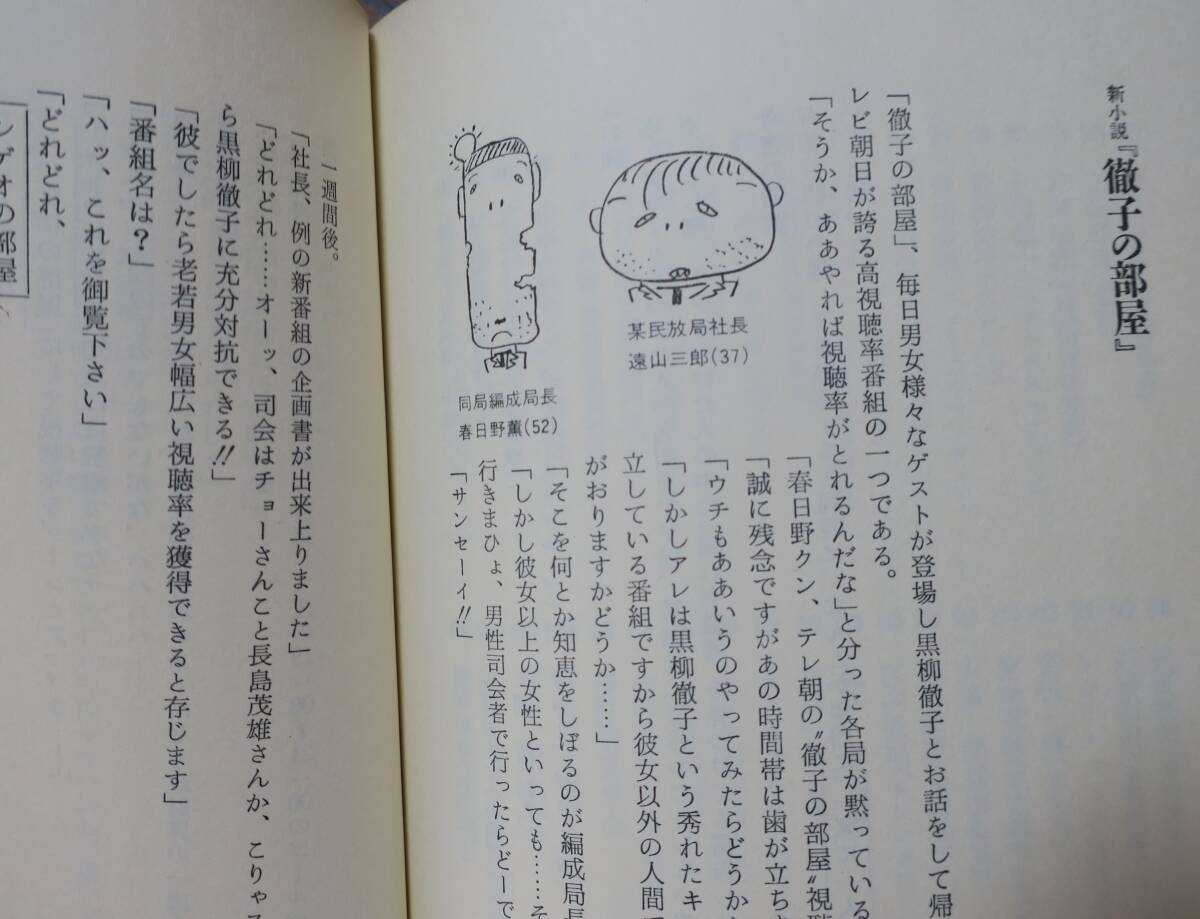 新小説『徹子の部屋』
「徹子の部屋」、毎日男女様々なゲストが登場し黒柳徹子とお話をして帰
レビ朝日が誇る高視聴率番組の一つである。
「そうか、ああやれば視聴率がとれるんだな」と分った各局が黙っている
某民放局社長
遠山三郎(37)
同局編成局長
春日野薫(52)
「春日野クン、テレ朝の〝徹子の部屋〟視聴
「誠に残念ですがあの時間帯は歯が立ちま
「ウチもああいうのやってみたらどうか
「しかしアレは黒柳徹子という秀れたキ
立している番組ですから彼女以外の人間で
がおりますかどうか……」
「そこを何とか知恵をしぼるのが編成局長
「しかし彼女以上の女性といっても……そ
行きまひょ、男性司会者で行ったらどーで
「サンセーイ!!」
一週間後。
「社長、例の新番組の企画書が出来上りました」
「どれどれ……オーッ、司会はチョーさんこと長島茂雄さんか、こりゃ
ら黒柳徹子に充分対抗できる!!」
「彼でしたら老若男女幅広い視聴率を獲得できると存じます」
「番組名は?」
「ハッ、これを御覧下さい」
「どれどれ、
シゲオの部屋